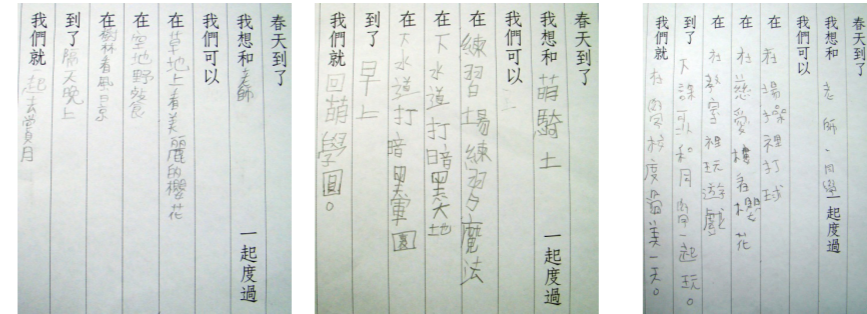 春天到了
我想和老師一起度過
我們可以
在草地上看美麗的櫻花
在空地野餐
在樹林看風景
到了隔天晚上
我們就一起去賞月
春天到了
我想和萌騎士一起度過
我們可以
在練習場練習魔法
在下水道打暗黑大地
在大水道打暗黑軍團
到了早上
我們就回萌學園。
春天到了
我想和老師、同學一起度過
我們可以
在在場操裡打球
在在慈愛樓看櫻花
在在教室裡玩遊戲
到了下課可以和同學一起玩。
我們就在學校度過美一天。